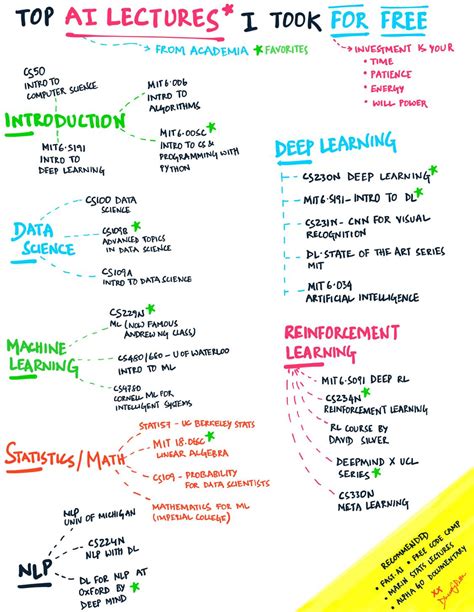 TOP AI LECTURES* I TOOK FOR FREE
FROM ACADEMIA
* FAVORITES
INVESTMENT IS YOUR
* TIME
* PATIENCE
* ENERGY
* WILL POWER
INTRODUCTION
CS50
INTRO TO
COMPUTER SCIENCE
MIT6.006
INTRO TO
ALGORITHMS
MIT6.00SC*
INTRO TO CS &
PROGRAMMING WITH
PYTHON
MIT6.S191
INTRO TO
DEEP LEARNING
DATA
SCIENCE
CS100 DATA
SCIENCE
CS109B*
ADVANCED TOPICS
IN DATA SCIENCE
CS109A
INTRO TO DATA SCIENCE
MACHINE
LEARNING
CS229N*
ML (NOW FAMOUS
ANDREW NG CLASS)
CS480/680 - U OF WATERLOO
INTRO TO ML
CS4780
CORNELL ML FOR
INTELLIGENT SYSTEMS
STATISTICS/MATH
STAT157 - UC BERKELEY STATS
MIT 18.06SC*
LINEAR ALGEBRA
CS109 - PROBABILITY
FOR DATA SCIENTISTS
MATHEMATICS FOR ML
(IMPERIAL COLLEGE)
NLP
NLP
UNIV OF MICHIGAN
CS224N*
NLP WITH DL
DL FOR NLP AT
OXFORD BY*
DEEP MIND
DEEP LEARNING
CS230N DEEP LEARNING*
MIT6.S191 - INTRO TO DL*
CS231N - CNN FOR VISUAL
RECOGNITION
DL-STATE OF THE ART SERIES
MIT
MIT6.034
ARTIFICIAL INTELLIGENCE
REINFORCEMENT
LEARNING
MIT6.S091 DEEP RL
CS234N*
REINFORCEMENT LEARNING
RL COURSE BY
DAVID SILVER
DEEPMIND X UCL
SERIES*
CS330N
META LEARNING
RECOMMENDED
FAST.AI • FREE CODE CAMP
• MARIN STATS LECTURES
• ALPHA GO DOCUMENTARY
XX